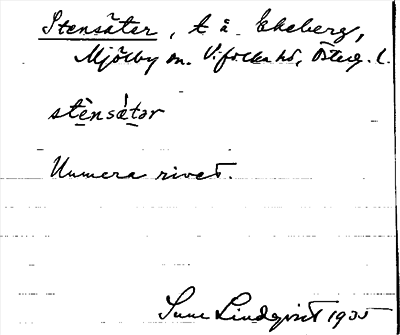 Stensäter, t å Ekeberg,
Mjölby sn. Vifolka hd, Österg. l.
stènsǽtər
Numera rivet.
Sune Lindqvist 1935